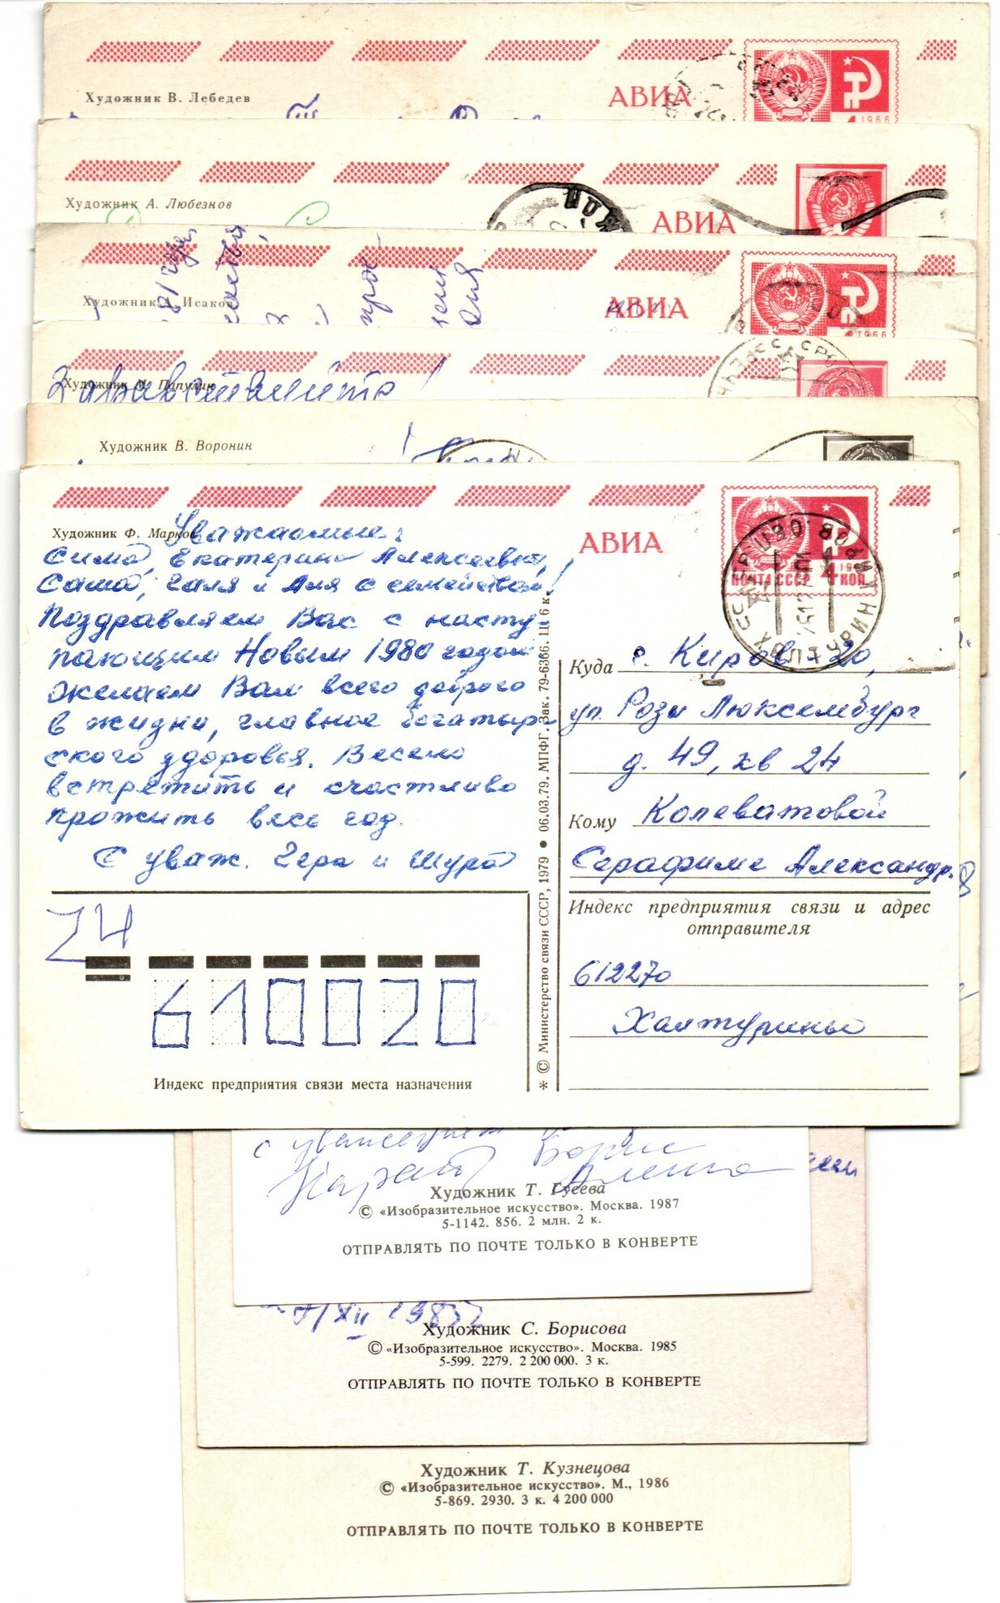 Художник В. Лебедев
АВИА
1966
Художник А. Любезнов
АВИА
Художник Исаков
АВИА
1966
Здравствуйте!
Художник Папулин
Художник В. Воронин
Художник Ф. Марков
Уважаемые
Сима, Екатерина Алексеевна,
Саша, Галя и Аня с семейством!
Поздравляем Вас с насту
пающим Новым 1980 годом
Желаем Вам всего доброго
в жизни, главное богатыр
ского здоровья. Весело
встретить и счастливо
прожить весь год.
С уваж. Гера и Шура
АВИА
ПОЧТА СССР 4 КОП.
Куда г. Киров-20,
ул. Розы Люксембург
д. 49, кв 24
Кому Колеватовой
Серафиме Александр.
Индекс предприятия связи и адрес
отправителя
612270
Халтурины
24
610020
Индекс предприятия связи места назначения
* © Министерство связи СССР, 1979 • 06.03.79. МПФГ. Зак. 79-6366. Ц. 6 к.
с уважением
Борис
Алена
Художник Т. Гусева
© «Изобразительное искусство». Москва. 1987
5-1142. 856. 2 млн. 2 к.
ОТПРАВЛЯТЬ ПО ПОЧТЕ ТОЛЬКО В КОНВЕРТЕ
Художник С. Борисова
© «Изобразительное искусство». Москва. 1985
5-599. 2279. 2 200 000. 3 к.
ОТПРАВЛЯТЬ ПО ПОЧТЕ ТОЛЬКО В КОНВЕРТЕ
Художник Т. Кузнецова
© «Изобразительное искусство». М., 1986
5-869. 2930. 3 к. 4 200 000
ОТПРАВЛЯТЬ ПО ПОЧТЕ ТОЛЬКО В КОНВЕРТЕ